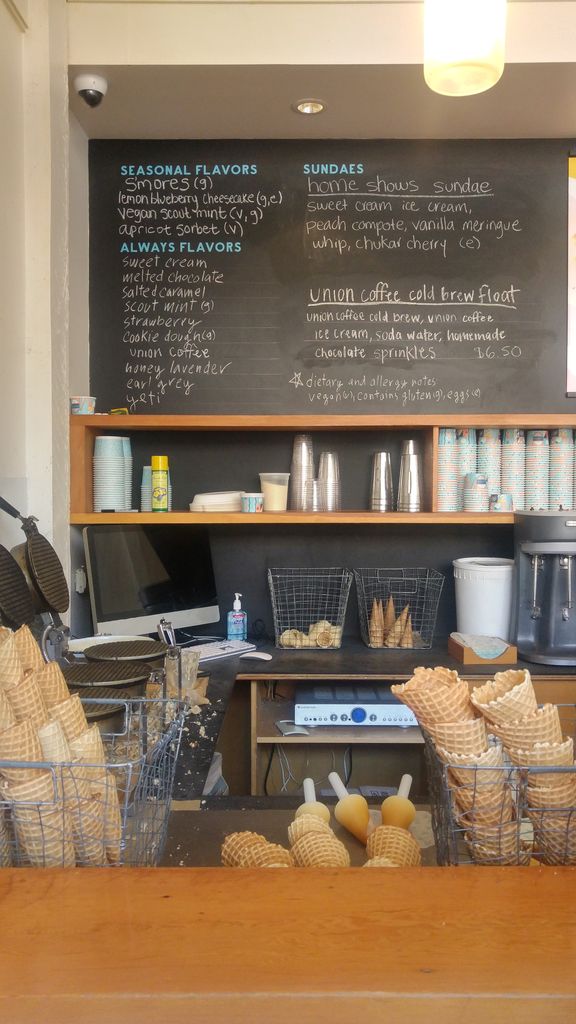 SEASONAL FLAVORS
Smores (g)
lemon blueberry cheesecake (g,e)
vegan scout mint (v, g)
apricot sorbet (v)
ALWAYS FLAVORS
sweet cream
melted chocolate
salted caramel
scout mint (g)
strawberry
cookie dough (g)
union coffee
honey lavender
earl grey
yeti
SUNDAES
home shows sundae
sweet cream ice cream,
peach compote, vanilla meringue
whip, chukar cherry (e)
union coffee cold brew float
union coffee cold brew, union coffee
ice cream, soda water, homemade
chocolate sprinkles $6.50
☆ dietary and allergy notes
vegan (v), contains gluten (g), eggs (e)